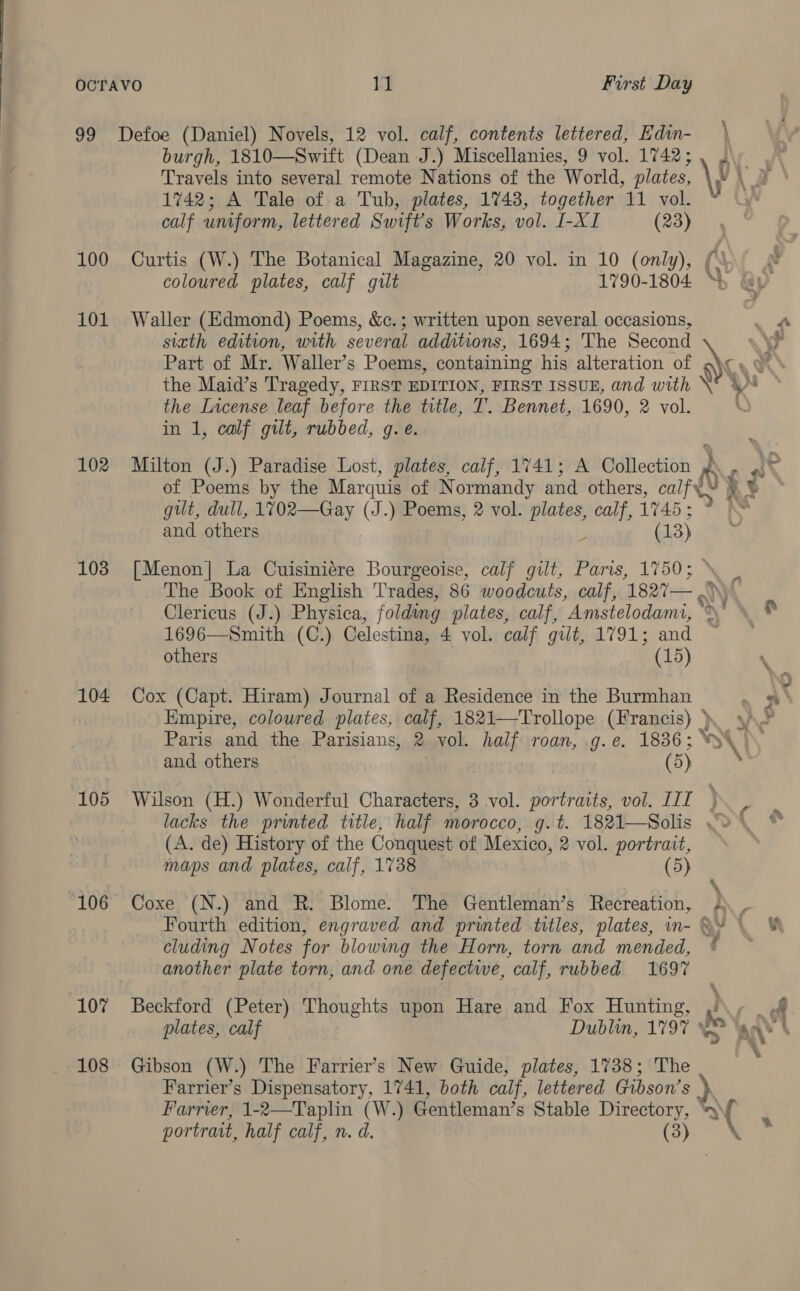 OCTAVO 11 First Day
99 Defoe (Daniel) Novels, 12 vol. calf, contents lettered, Edin-
burgh, 1810—Swift (Dean J.) Miscellanies, 9 vol. 1742;
Travels into several remote Nations of the World, plates,
1742; A Tale of a Tub, plates, 1743, together 11 vol.
calf uniform, lettered Swift's Works, vol. I-XI (23)
100 Curtis (W.) The Botanical Magazine, 20 vol. in 10 (only),
coloured plates, calf gilt 1790-1804
101 Waller (Edmond) Poems, &c.; written upon several occasions,
sixth edition, with several additions, 1694; The Second
Part of Mr. Waller's Poems, containing his alteration of
the Maid's Tragedy, FIRST EDITION, FIRST ISSUE, and with
the License leaf before the title, T. Bennet, 1690, 2 vol.
in 1, calf gilt, rubbed, g. e.
102 Milton (J.) Paradise Lost, plates, calf, 1741; A Collection
of Poems by the Marquis of Normandy and others, calf
gilt, dull, 1702—Gay (J.) Poems, 2 vol. plates, calf, 1745;
and others (13)
103 [Menon] La Cuisiniére Bourgeoise, calf gilt, Paris, 1750;
The Book of English Trades, 86 woodcuts, calf, 1827—
Clericus (J.) Physica, folding plates, calf, Amstelodami,
1696—Smith (C.) Celestina, 4 vol. calf gilt, 1791; and
others (15)
104 Cox (Capt. Hiram) Journal of a Residence in the Burmhan
Empire, coloured plates, calf, 1821—Trollope (Francis)
Paris and the Parisians, 2 vol. half roan, g. e. 1836;
and others (5)
105 Wilson (H.) Wonderful Characters, 3 vol. portraits, vol. III
lacks the printed title, half morocco, g. t. 1821—Solis
(A. de) History of the Conquest of Mexico, 2 vol. portrait,
maps and plates, calf, 1738 (5)
106 Coxe (N.) and R. Blome. The Gentleman's Recreation,
Fourth edition, engraved and printed titles, plates, in-
cluding Notes for blowing the Horn, torn and mended,
another plate torn, and one defective, calf, rubbed 1697
107 Beckford (Peter) Thoughts upon Hare and Fox Hunting,
plates, calf Dublin, 1797
108 Gibson (W.) The Farrier's New Guide, plates, 1738; The
Farrier's Dispensatory, 1741, both calf, lettered Gibson's
Farrier, 1-2—Taplin (W.) Gentleman's Stable Directory,
portrait, half calf, n. d. (3)